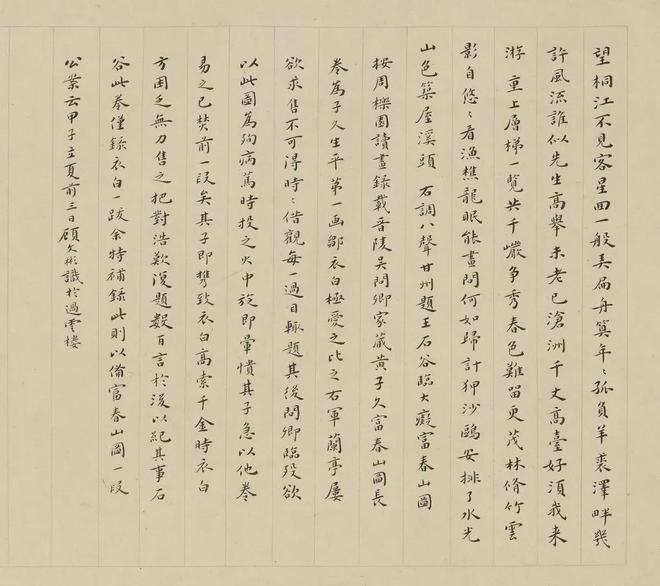 望桐江不見客星回一般美扁舟算年〻孤負羊裘澤畔幾
許風流誰似先生高舉未老已滄洲千丈高臺好須我来
游 重上層梯一覽共千巖爭秀春色難留更茂林脩竹雲
影自悠〻看漁樵龍眠能畫問何如歸計狎沙鷗安排了水光
山色築屋溪頭 右調八聲甘州題王石谷臨大癡富春山圖
按周櫟園讀畫錄載晉陵吳問卿家蔵黄子久富春山圖長
卷為子久生平第一画鄒衣白極愛之比之右軍蘭亭屢
欲求售不可得時〻借觀每一過目輒題其後問卿臨歿欲
以此圖為殉病篤時投之火中旋即暈憒其子急以他卷
易之已焚前一段矣其子即携致衣白高索千金時衣白
方困乏無力售之把對浩歎復題數百言於後以紀其事石
谷此卷僅錄衣白一跋余特補錄此則以備富春山圖一段
公案云甲子立夏前三日顧文彬識於過雲樓